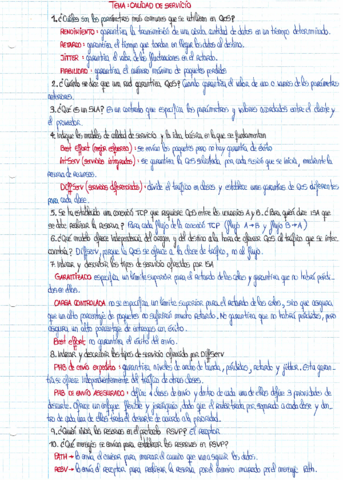 TEMA: CALIDAD DE SERVICIO
1. ¿Cuáles son los parámetros más comunes que se utilizan en QoS?
RENDIMIENTO: garantiza la transmisión de una cierta cantidad de datos en un tiempo determinado.
RETARDO: garantiza el tiempo que tardan en llegar los datos al destino.
JITTER: garantiza el valor de las fluctuaciones en el retardo.
FIABILIDAD: garantiza el número máximo de paquetes perdidos
2. ¿Cuándo se dice que una red garantiza QoS? Cuando garantiza el valor de uno o varios de los parámetros
anteriores.
3. ¿Qué es un SLA? Es un contrato que especifica los parámetros y valores acordados entre el cliente y
el proveedor.
4. Indique los modelos de calidad de servicio y la idea básica en la que se fundamentan
Best effort (mejor esfuerzo): se envían los paquetes pero no hay garantía de éxito
IntServ (servicios integrados): se garantiza la QoS solicitada, por cada sesión que se inicia, mediante la
reserva de recursos.
DiffServ (servicios diferenciados): divide el tráfico en clases y establece unas garantías de QoS diferentes
para cada clase.
5. Se ha establecido una conexión TCP que requiere QoS entre los usuarios A y B. ¿Para quién dice ISA que
se debe realizar la reserva? Para cada flujo de la conexión TCP (flujo A→B y flujo B→A)
6. ¿Qué modelo ofrece independencia del origen y del destino a la hora de ofrecer QoS al tráfico que se inter-
cambia? Diffserv, porque la QoS se ofrece a la clase de tráfico, no al flujo.
7. Indicar y describir los tipos de servicio ofrecidos por ISA
GARANTIZADO: especifica un límite superior para el retardo de las colas y garantiza que no habrá pérdi-
das en ellas.
CARGA CONTROLADA: no se especifica un límite superior para el retardo de las colas, sino que asegura
que un alto porcentaje de paquetes no sufrirá mucho retardo. No garantiza que no habrá pérdidas, pero
asegura un alto porcentaje de entregas con éxito.
Best effort: no garantiza el éxito del envío.
8. Indicar y describir los tipos de servicio ofrecido por Diffserv
PHB de envío expedito: garantiza niveles de ancho de banda, pérdidas, retardo y jitter. Esta garan-
tía se ofrece independientemente del tráfico de otras clases.
PHB de ENVÍO ASEGURADO: define 4 clases de envío y dentro de cada una de ellas define 3 prioridades de
descarte. Ofrece un enfoque flexible y jerárquico dado que el router trata por separado a cada clase y den-
tro de cada una de ellas trata el descarte de acuerdo a la prioridad.
9. ¿Quién inicia las reservas en el protocolo RSVP? El receptor.
10. ¿Qué mensajes se envían para establecer las reservas en RSVP?
PATH → lo envía el emisor para marcar el camino que van a seguir los datos.
RESV → lo envía el receptor para realizar la reserva por el camino marcado por el mensaje Path.